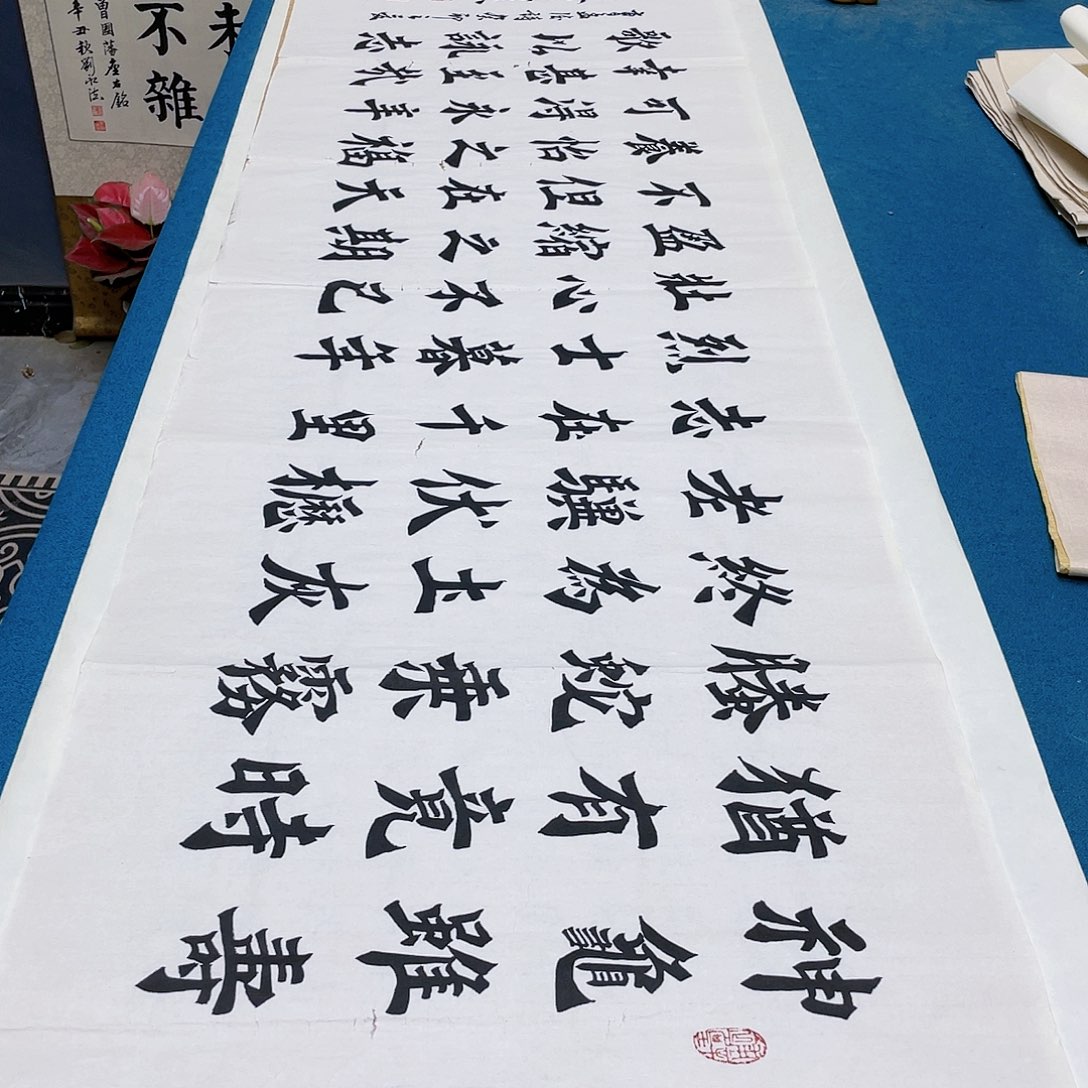 神龜雖壽
猶有竟時
騰蛇乘霧
終為土灰
老驥伏櫪
志在千里
烈士暮年
壯心不已
盈縮之期
不但在天
養怡之福
可得永年
幸甚至哉
歌以詠志
孟德詩癸卯
未
不雜
曾國藩座右銘
辛丑秋劉永